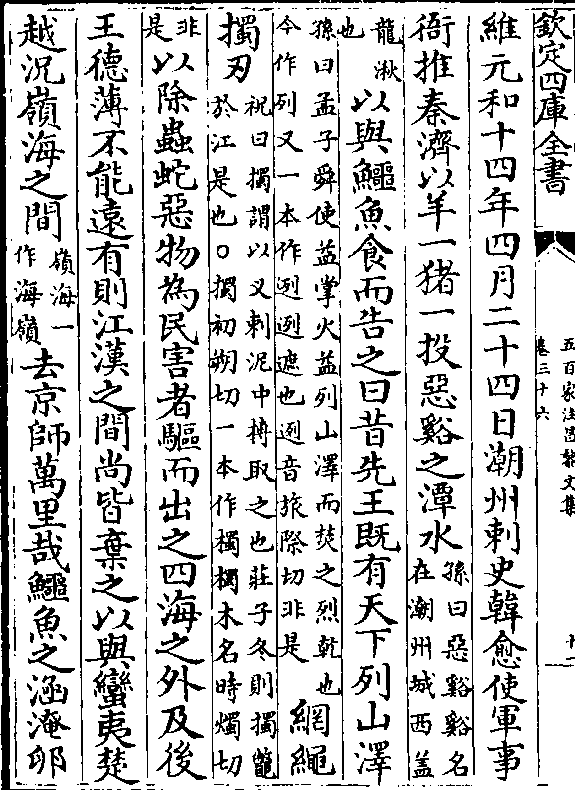 欽定四庫全書
五百家注昌黎文集
卷三十六
維元和十四年四月二十四日潮州刺史韓愈使軍事
衙推秦濟以羊一猪一投惡谿之潭水
孫曰惡谿谿名
在潮州城西蓋
龍湫
也
以與鱷魚食而告之曰昔先王既有天下列山澤
孫曰孟子舜使益掌火益列山澤而焚之烈乾也
今作列又一本作迾迾遮也迾音旅際切非是
網繩
擉刃
祝曰擉謂以叉刺泥中摶取之也莊子冬則擉鼈
於江是也○擉初朔切一本作欘欘木名時燭切
非
是
以除蟲蛇惡物為民害者驅而出之四海之外及後
王德薄不能遠有則江漢之間尚皆棄之以與蠻夷楚
越況嶺海之間
嶺海一
作海嶺
去京師萬里哉鱷魚之涵淹卵